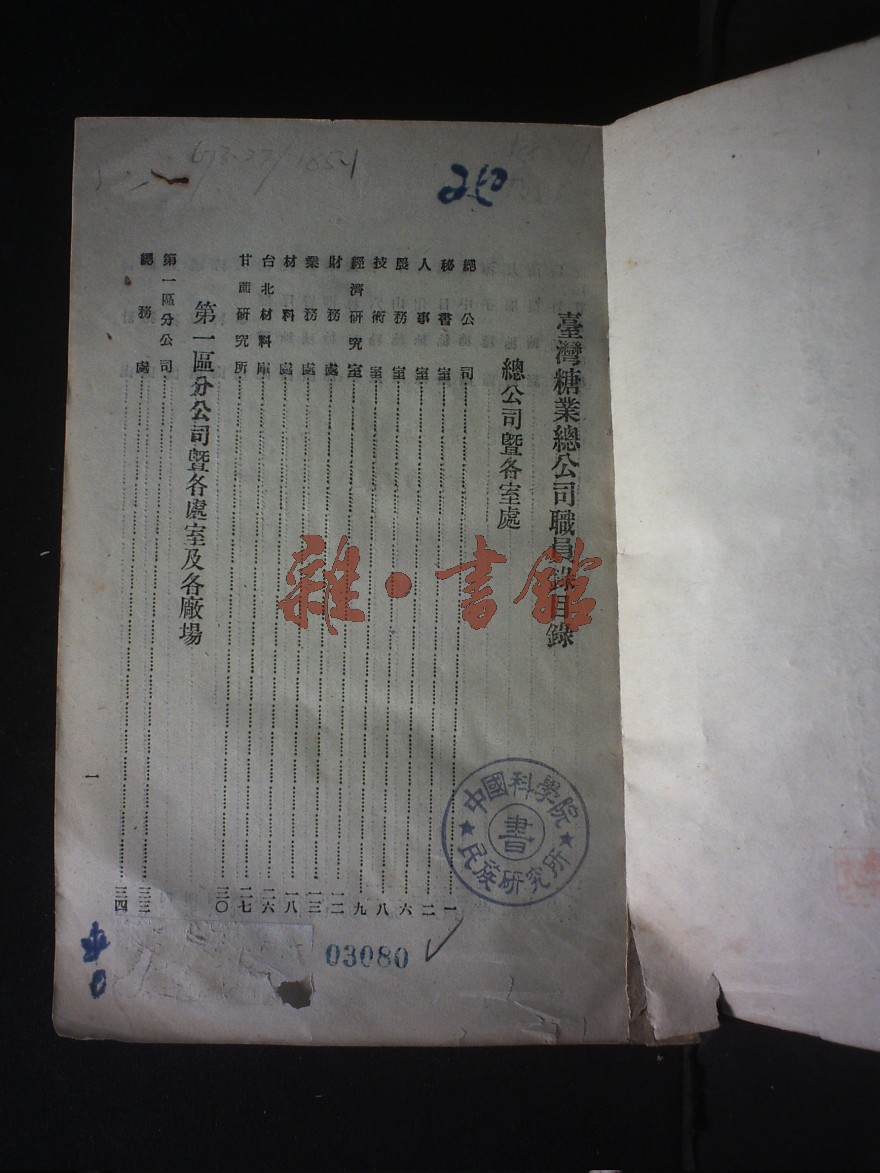 臺灣糖業總公司職員錄目錄
總公司暨各室處
總公司……一
秘書室……二
人事室……六
農務室……八
技術室……九
經濟研究室……一二
財務處……一三
業務處……一八
材料處……二六
台北材料庫……二七
甘蔗研究所……三〇
第一區分公司暨各處室及各廠場
第一區分公司……三三
總務處……三四
一
中國科學院
民族研究所
書
03080
雜·書館